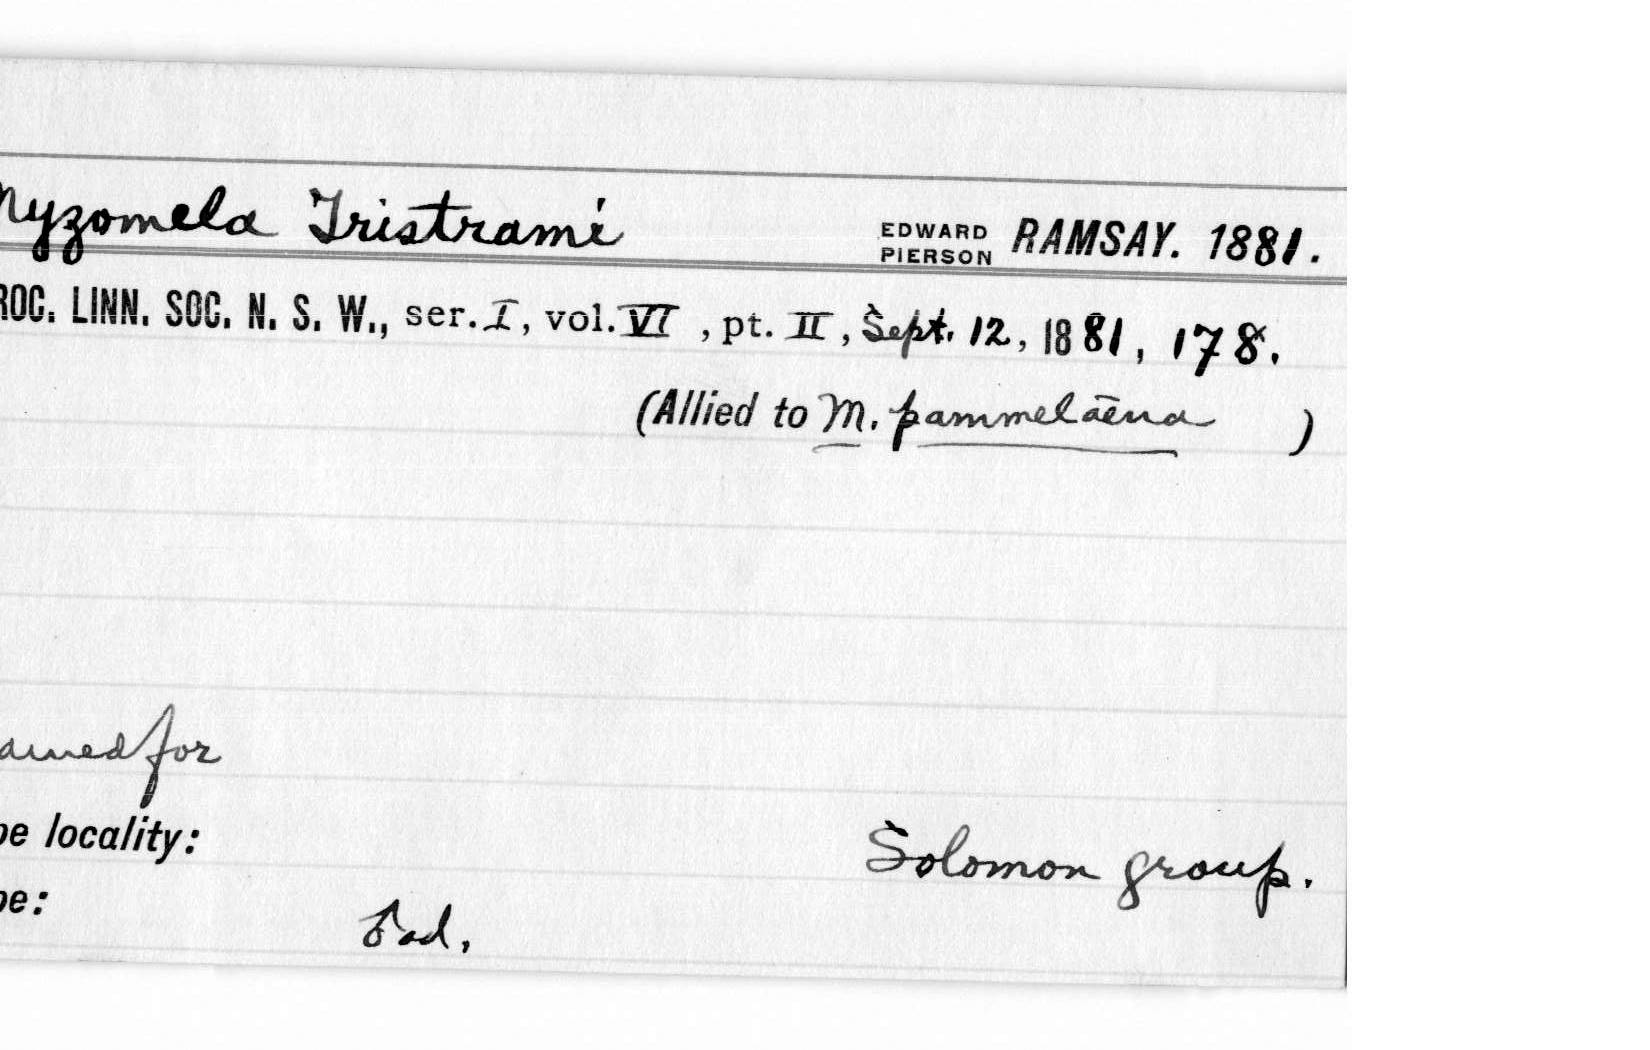 Myzomela Tristrami EDWARD PIERSON RAMSAY. 1881.
ROC. LINN. SOC. N. S. W., ser. I, vol. VI, pt. II, Sept. 12, 1881, 178.
(Allied to M. pammelaena )
amed for
pe locality: Solomon group.
pe: ♂ ad.